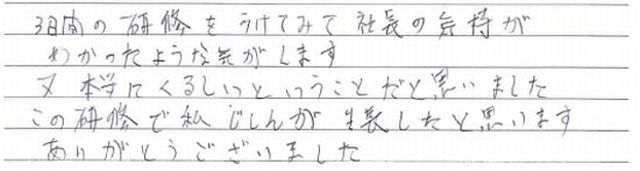 3日間の研修をうけてみて社長の気持が
わかったような気がします
又本当にくるしいということだと思いました
この研修で私じしんが生長したと思います
ありがとうございました